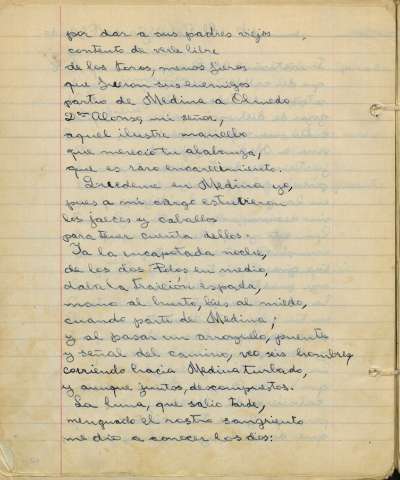 por dar a sus padres viejos
contento de verle libre
de los toros, menos fieros
que fueron sus enemigos
partio de Medina a Olmedo
Dn Alonso, mi señor,
aquel ilustre mancebo
que mereció tu alabanza,
que es raro encarecimiento.
Quedeme en Medina yo,
pues a mi cargo estuvieron
los jaeces y caballos
para tener cuenta dellos.
Ya la encapotada noche,
de los dos Polos en medio,
daba la traición espada,
mano al hurto, pies al miedo,
cuando parti de Medina;
y al pasar un arroyuelo, puente
y señal del camino, veo seis hombres
corriendo hacia Medina turbado,
y aunque juntos, descompuestos.
La luna, que salio tarde,
menguado el rostro sangriento
me dio a conocer los dos: